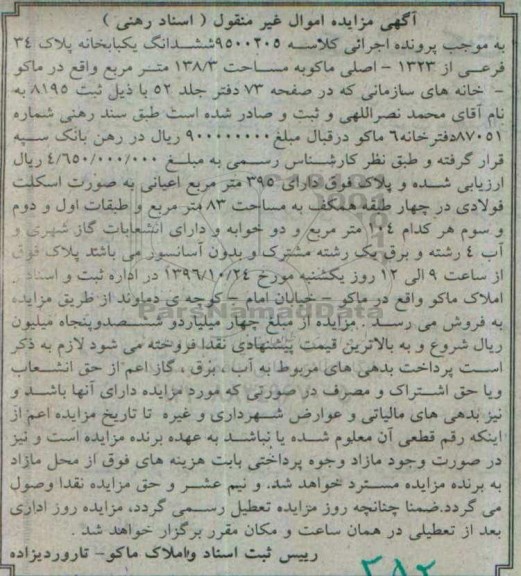 آگهی مزایده اموال غیر منقول ( اسناد رهنی )
به موجب پرونده اجرائی کلاسه ۹۵۰۰۲۰۵ششدانگ یکبابخانه پلاک ۳۴
فرعی از ۱۳۲۳ - اصلی ماکوبه مساحت ۱۳۸/۳ متر مربع واقع در ماکو
- خانه های سازمانی که در صفحه ۷۳ دفتر جلد ۵۲ با ذیل ثبت ۸۱۹۵ به
نام آقای محمد نصراللهی و ثبت و صادر شده است طبق سند رهنی شماره
۸۷۰۵۱دفترخانه۶ ماکو درقبال مبلغ ۹۰۰۰۰۰۰۰۰ ریال در رهن بانک سپه
قرار گرفته و طبق نظر کارشناس رسمی به مبلغ ۴/۶۵۰/۰۰۰/۰۰۰ ریال
ارزیابی شده و پلاک فوق دارای ۳۹۵ متر مربع اعیانی به صورت اسکلت
فولادی در چهار طبقه همکف به مساحت ۸۳ متر مربع و طبقات اول و دوم
و سوم هر کدام ۱۰۴ متر مربع و دو خوابه و دارای انشعابات گاز شهری و
آب ۴ رشته و برق یک رشته مشترک و بدون آسانسور می باشد پلاک فوق
از ساعت ۹ الی ۱۲ روز یکشنبه مورخ ۱۳۹۶/۱۰/۲۴ در اداره ثبت و اسناد
املاک ماکو واقع در ماکو – خیابان امام – کوچه ی دماوند از طریق مزایده
به فروش می رسد . مزایده از مبلغ چهار میلیاردو ششصدوپنجاه میلیون
ریال شروع و به بالاترین قیمت پیشنهادی نقدا فروخته می شود لازم به ذکر
است پرداخت بدهی های مربوط به آب ، برق ، گاز اعم از حق انشعاب
ویا حق اشتراک و مصرف در صورتی که مورد مزایده دارای آنها باشد و
نیز بدهی های مالیاتی و عوارض شهرداری و غیره تا تاریخ مزایده اعم از
اینکه رقم قطعی آن معلوم شده یا نباشد به عهده برنده مزایده است و نیز
در صورت وجود مازاد وجوه پرداختی بابت هزینه های فوق از محل مازاد
به برنده مزایده مسترد خواهد شد. و نیم عشر و حق مزایده نقدا وصول
می گردد.ضمنا چنانچه روز مزایده تعطیل رسمی گردد، مزایده روز اداری
بعد از تعطیلی در همان ساعت و مکان مقرر برگزار خواهد شد .
رییس ثبت اسناد واملاک ماکو- تاروردیزاده
۲۸۲
ParsNamadData